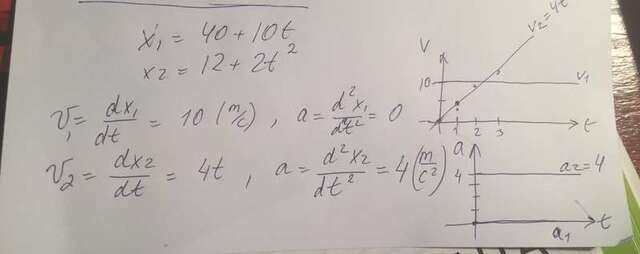 x₁ = 40 + 10t
x₂ = 12 + 2t²
v₁ = dx₁/dt = 10 (m/c), a = d²x₁/dt² = 0
v₂ = dx₂/dt = 4t, a = d²x₂/dt² = 4 (m/c²)
v₂ = 4t
V
10
v₁
1 2 3 t
a
4
a₂ = 4
a₁ t